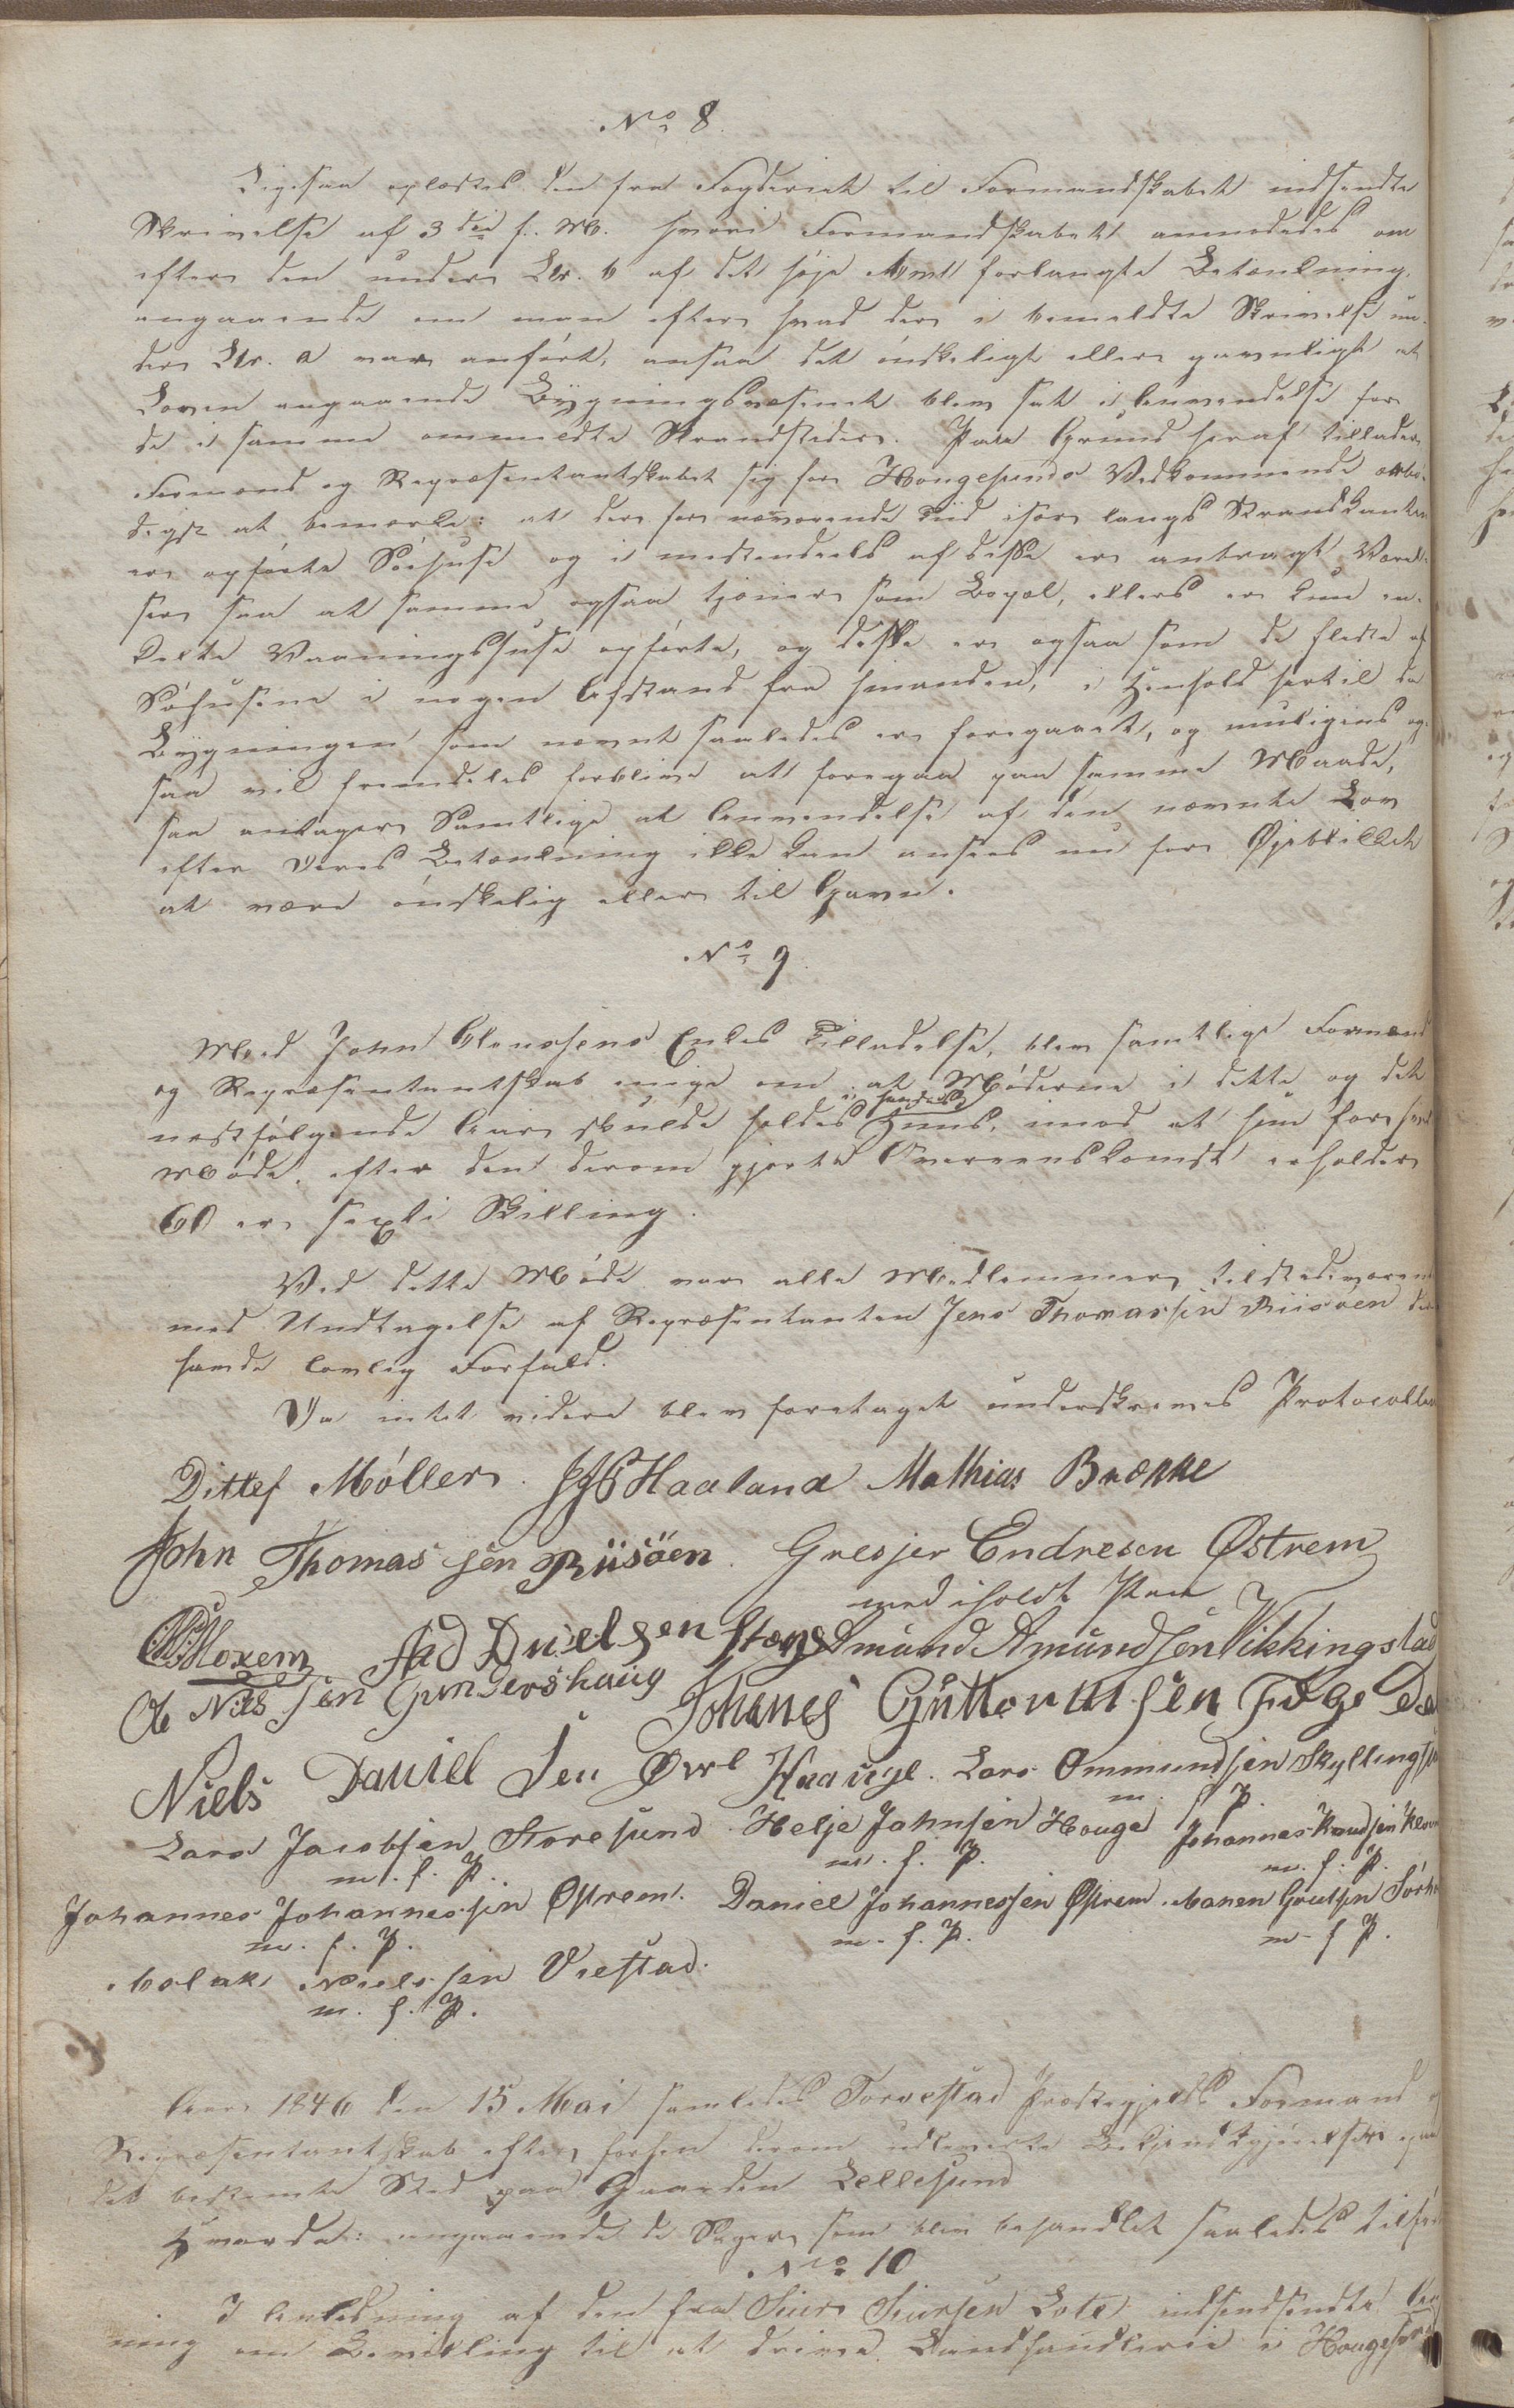 No 8.
Ligesaa oplæstes den fra Fogderiet til Formandskabet indsendte
Skrivelse af 3die f. M. hvori Formandskabet anmodedes om
efter den under Ltr. b af det høje Amt forlangte Betænkning
angaaende om man efter hvad der i bemeldte Skrivelse un-
der Ltr. a var anført, ansaa det ønskeligt eller gavnligt at
Loven angaaende Bygningsvæsenet blev sat i Anvendelse for
de i samme ommeldte Strandsteder. Paa Grund heraf tillader
Formænd og Repræsentantskabet sig for Hougesunds Vedkommende ærbø-
digst at bemærke: at der for nærværende Tiid især langs Strandkanten
er opførte Søehuse og i mestendeels af disse er anbragt Værel-
ser saa at samme ogsaa tjæner som Bopæl, ellers er kun en-
kelte Vaaningshuse opførte, og disse er ogsaa som de fleste af
Søhusene i nogen Afstand fra hinanden, i Henhold hertil da
Bygningen som nævnt saaledes er foregaaet, og muligens og-
saa vil fremdeles forblive at foregaa paa samme Maade,
saa antager Samtlige at Anvendelse af den nævnte Lov
efter Deres Betænkning ikke kan ansees nu for Øjeblikket
at være ønskelig eller til Gavn.
No 9.
Med John Clausens Enkes Tilladelse, blev samtlige Formænd
og Repræsentantskab enige om at Møderne i dette og det
næstfølgende Aar skulde holdes i hendes Huus, imod at hun for hvert
Møde, efter den derom gjorte Overeenskomst erholder
60 er sexti Skilling.
Ved dette Møde var alle Medlemmer tilstedeværend
med Undtagelse af Repræsentanten Jens Thomassen Riisøen der
havde lovlig Forfald.
Da intet videre blev foretaget underskreves Protocollen
Ditlef Møller. Haaland Mathias Brække
John Thomas sen Riisöen. Gresjer Endresen Østrem
med iholdt Pen
Moxem Danielsen Stange Amund Amundsen Vikkingstad
Ole Nils sen Gundershaug Johanes Guttormsen
Niels Daniel Sen Lars Ommundsen Skyllingst
m. f. P.
Lars Jacobsen Storesund Helje Johnsen Houge Johannes Knudsen
m. f. P. m. f. P. m. f. P.
Johannes Johannessen Østrem. Daniel Johannessen Østrem.
m. f. P. m. f. P. m. f P.
Nielssen Viestad.
m. f. P.
Aar 1846 den 15 Mai samledes Torvestad Præstegjelds Formand
Repræsentantskab efter forhen derom udleverte Bekjendtgjørelser paa
det bestemte Sted paa Gaarden Lillesund
Hvorda: angaaende de Sager som blev behandlet saaledes
No 10
I Anledning af den fra Siur Siursen Lote indsendsendte
ning om Bevilling til at drive Landhandlerie i Hougesund